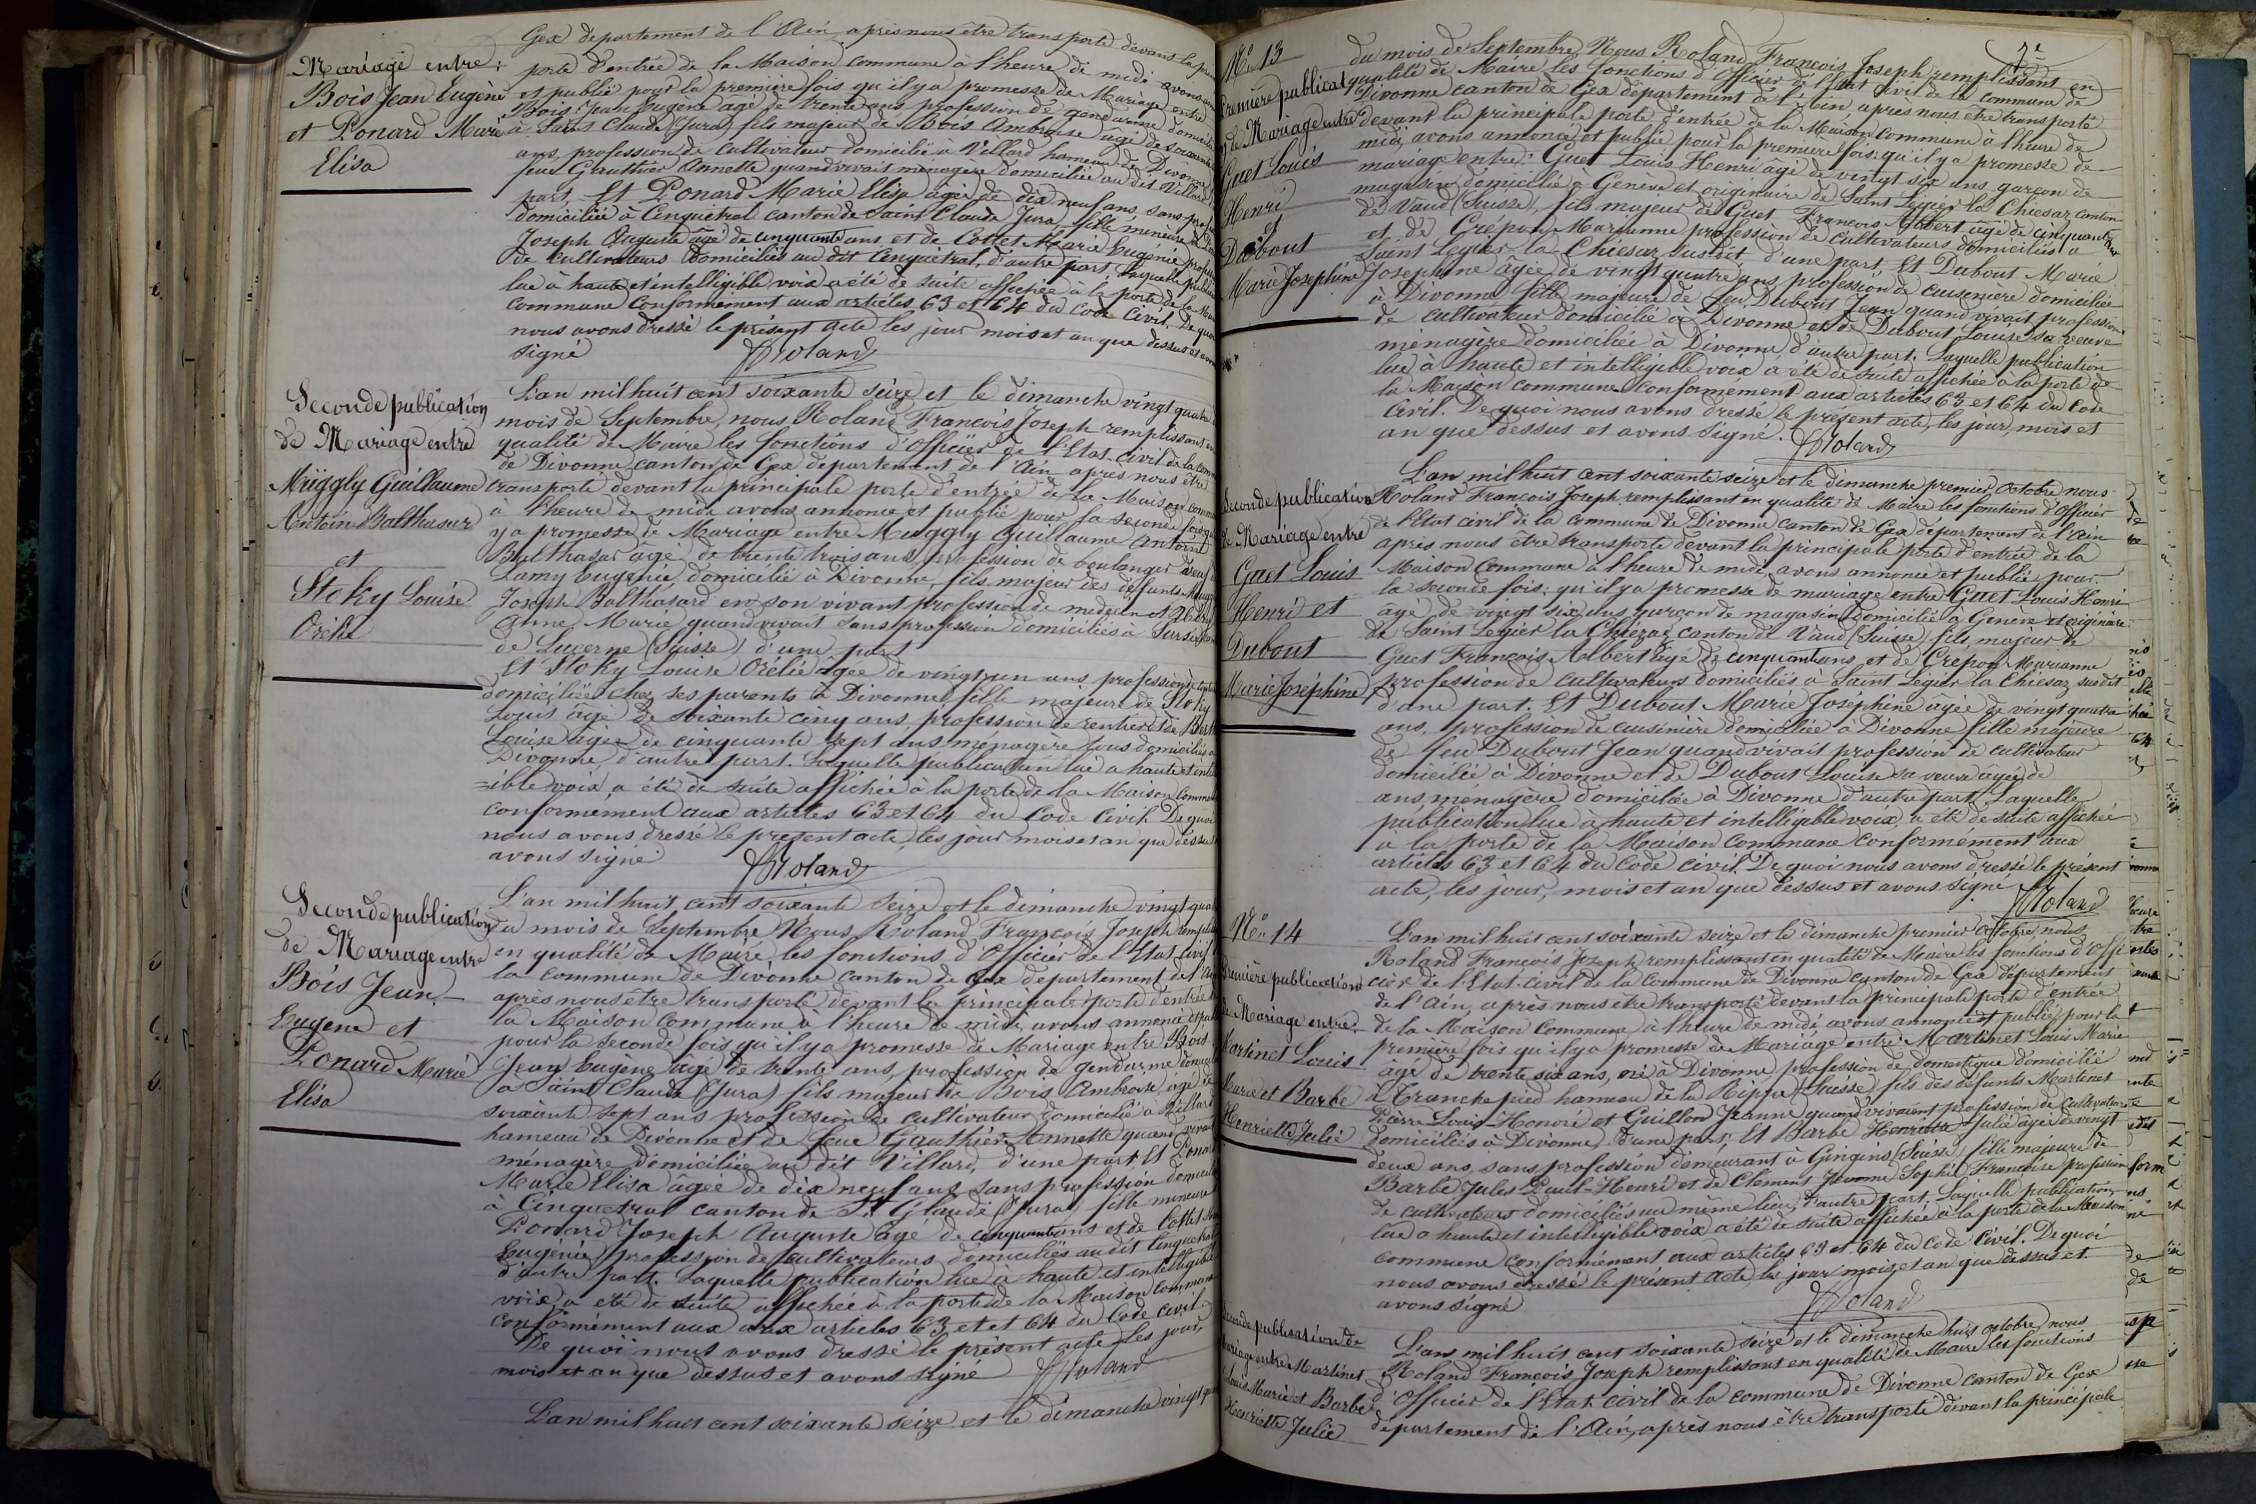 Gex département de l'Ain, après nous être transporté devant la
Mariage entre
Bois Jean Eugène
et Ponard Marie
Elisa
porte d'entrée de la Maison commune à l'heure de midi avons
et publié pour la première fois qu'il y a promesse de Mariage entre
Bois Jean Eugène âgé de trente ans profession de gendarme domicilié
à Saint Claude (Jura) fils majeur de Bois Ambroise âgé de soixante
ans, profession de cultivateur domicilié à Villard hameau de Divonne
feue Gauthier Annette quand vivait ménagère domiciliée au dit Villard
part. Et Ponard Marie Elisa âgée de dix neuf ans, sans
domiciliée à Cinquétral canton de Saint Claude Jura, fille mineure
Joseph Auguste âgé de cinquante ans et de Cottet Marie Eugénie
de cultivateurs domiciliés au dit Cinquétral, d'autre part, laquelle
lue à haute et intelligible voix a été de suite affichée à la porte de la
commune conformément aux articles 63 et 64 du Code Civil. De quoi
nous avons dressé le présent acte les jour mois et an que dessus et
signé
Roland
Seconde publication
de Mariage entre
Müggly Guillaume
Antoine Balthasar
et
Stoky Louise
Orélie
L'an mil huit cent soixante seize et le dimanche vingt quatre
mois de Septembre, nous Roland François Joseph remplissant en
qualité de Maire les fonctions d'officier de l'Etat-civil de la
de Divonne canton de Gex département de l'Ain après nous être
transporté devant la principale porte d'entrée de la Maison
à l'heure de midi avons annoncé et publié pour la seconde fois
y a promesse de Mariage entre Muggly Guillaume Antoine
Balthasar âgé de trente trois ans, profession de boulanger
Lamy Eugénie, domicilié à Divonne, fils majeur des défunts
Joseph Balthasard en son vivant profession de médecin et
Anne Marie quand vivait sans profession domiciliés à
de Lucerne (Suisse) d'une part
Et Stoky Louise Orélie âgée de vingt un ans, profession
domiciliée chez ses parents à Divonne fille majeure de Stoky
Louis âgé de soixante cinq ans, profession de rentier et de
Louise âgée de cinquante sept ans ménagère tous domiciliés à
Divonne, d'autre part. Laquelle publication lue à haute et
=ible voix a été de suite affichée à la porte de la Maison
conformément aux articles 63 et 64 du Code Civil. De quoi
nous avons dressé le présent acte, les jour mois et an que dessus
avons signé
Roland
Seconde publication
de Mariage entre
Bois Jean
Eugène et
Ponard Marie
Elisa
L'an mil huit cent soixante seize et le dimanche vingt
du mois de Septembre Nous Roland François Joseph
en qualité de Maire les fonctions d'Officier de l'Etat civil
la commune de Divonne canton de Gex département de l'Ain
après nous être transporté devant la principale porte d'entrée
la Maison commune à l'heure de midi, avons annoncé et
pour la seconde fois qu'il y a promesse de Mariage entre Bois
Jean Eugène âgé de trente ans, profession de gendarme
à Saint Claude (Jura) fils majeur de Bois Ambroise, âgé de
soixante sept ans profession de cultivateur domicilié à Villard
hameau de Divonne et de feue Gauthier Annette quand vivait
ménagère domiciliée au dit Villard, d'une part Et Ponard
Marie Elisa âgée de dix neuf ans sans profession
à Cinquetral canton de St Claude (Jura) fille mineure
Ponard Joseph Auguste âgé de cinquante ans et de Cottet
Eugénie profession de cultivateurs domiciliés au dit Cinquetral
d'autre part. Laquelle publication lue à haute et intelligible
voix a été de suite affichée à la porte de la Maison commune
conformément aux aux articles 63 et et 64 du Code civil.
De quoi nous avons dressé le présent acte les jour,
mois et an que dessus et avons signé
Roland
L'an mil huit cent soixante seize et le dimanche vingt
No 13
Première publicat
de Mariage entre
Guet Louis
Henri
et
Dubout
Marie Joséphine
du mois de Septembre, Nous Roland François Joseph remplissant en
qualité de Maire les fonctions d'officier de l'Etat civil de la commune de
Divonne canton de Gex département de l'Ain, après nous être transporté
devant la principale porte d'entrée de la Maison commune à l'heure de
midi, avons annoncé et publié pour la première fois, qu'il y a promesse de
mariage entre: Guet Louis Henri âgé de vingt six ans, garçon de
magasin domicilié à Genève et originaire de Saint Légier la Chiésaz canton
de Vaud (Suisse), fils majeur de Guet François Albert âgé de cinquante
et de Crépon Marianne profession de cultivateurs domiciliés à
Saint Légier la Chiésaz sus dit, d'une part. Et Dubout Marie
Joséphine âgée de vingt quatre ans, profession de cuisinière domiciliée
à Divonne fille majeure de feu Dubout Jean quand vivait profession
de cultivateur domicilié à Divonne et de Dubout Louise sa veuve
ménagère domiciliée à Divonne, d'autre part. Laquelle publication
lue à haute et intelligible voix a été de suite affichée à la porte de
la Maison commune conformément aux articles 63 et 64 du Code
Civil. De quoi nous avons dressé le présent acte, les jour, mois et
an que dessus et avons signé.
Roland
Seconde publication
de Mariage entre
Guet Louis
Henri et
Dubout
Marie Joséphine
L'an mil huit cent soixante seize et le dimanche premier Octobre nous
Roland François Joseph remplissant en qualité de Maire les fonctions d'officier
de l'Etat civil de la commune de Divonne canton de Gex département de l'Ain
après nous être transporté devant la principale porte d'entrée de la
Maison commune à l'heure de midi, avons annoncé et publié pour
la seconde fois, qu'il y a promesse de mariage entre Guet Louis Henri
âgé de vingt six ans, garçon de magasin domicilié à Genève et originaire
de Saint Légier la Chiézaz canton de Vaud (Suisse) fils majeur de
Guet François Albert âgé de cinquante ans et de Crépon Marianne
profession de cultivateurs domiciliés à Saint Légier la Chiésaz sus dit
d'une part. Et Dubout Marie Joséphine âgée de vingt quatre
ans, profession de cuisinière domiciliée à Divonne fille majeure
de feu Dubout Jean quand vivait profession de cultivateur
domicilié à Divonne et de Dubout Louise sa veuve âgée de
ans ménagère domiciliée à Divonne d'autre part. Laquelle
publication lue à haute et intelligible voix, a été de suite affichée
à la porte de la Maison commune conformément aux
articles 63 et 64 du Code civil. De quoi nous avons dressé le présent
acte, les jour, mois et an que dessus et avons signé
Roland
No 14
Première publication
de Mariage entre
Martinet Louis
Marie et Barbe
Henriette Julie
L'an mil huit cent soixante seize et le dimanche premier Octobre nous
Roland François Joseph remplissant en qualité de Maire les fonctions d'Offi
cier de l'Etat-civil de la commune de Divonne canton de Gex département
de l'Ain, après nous être transporté devant la principale porte d'entrée
de la Maison commune à l'heure de midi avons annoncé et publié pour la
première fois qu'il y a promesse de Mariage entre Martinet Louis Marie
âgé de trente six ans, né à Divonne profession de domestique domicilié
à Tranchepied hameau de la Rippe (Suisse) fils des défunts Martinet
Pierre Louis-Honoré et Guillon Jeanne quand vivaient profession de cultivateurs
domiciliés à Divonne, d'une part; Et Barbe Henriette Julie âgée de vingt
deux ans, sans profession demeurant à Gingins (Suisse) fille majeure de
Barbe Jules Paul-Henri et de Clément Sophie Françoise profession
de cultivateurs domiciliés au même lieu, d'autre part. Laquelle publication
lue à haute et intelligible voix a été de suite affichée à la porte de la Maison
commune conformément aux articles 63 et 64 du Code Civil. De quoi
nous avons dressé le présent acte les jour mois et an que dessus et
avons signé
Roland
Seconde publication de
Mariage entre Martinet
Louis Marie et Barbe
Henriette Julie
L'an mil huit cent soixante seize et le dimanche huit octobre, nous
Roland François Joseph remplissant en qualité de Maire les fonctions
d'officier de l'Etat civil de la commune de Divonne canton de Gex
département de l'Ain, après nous être transporté devant la principale